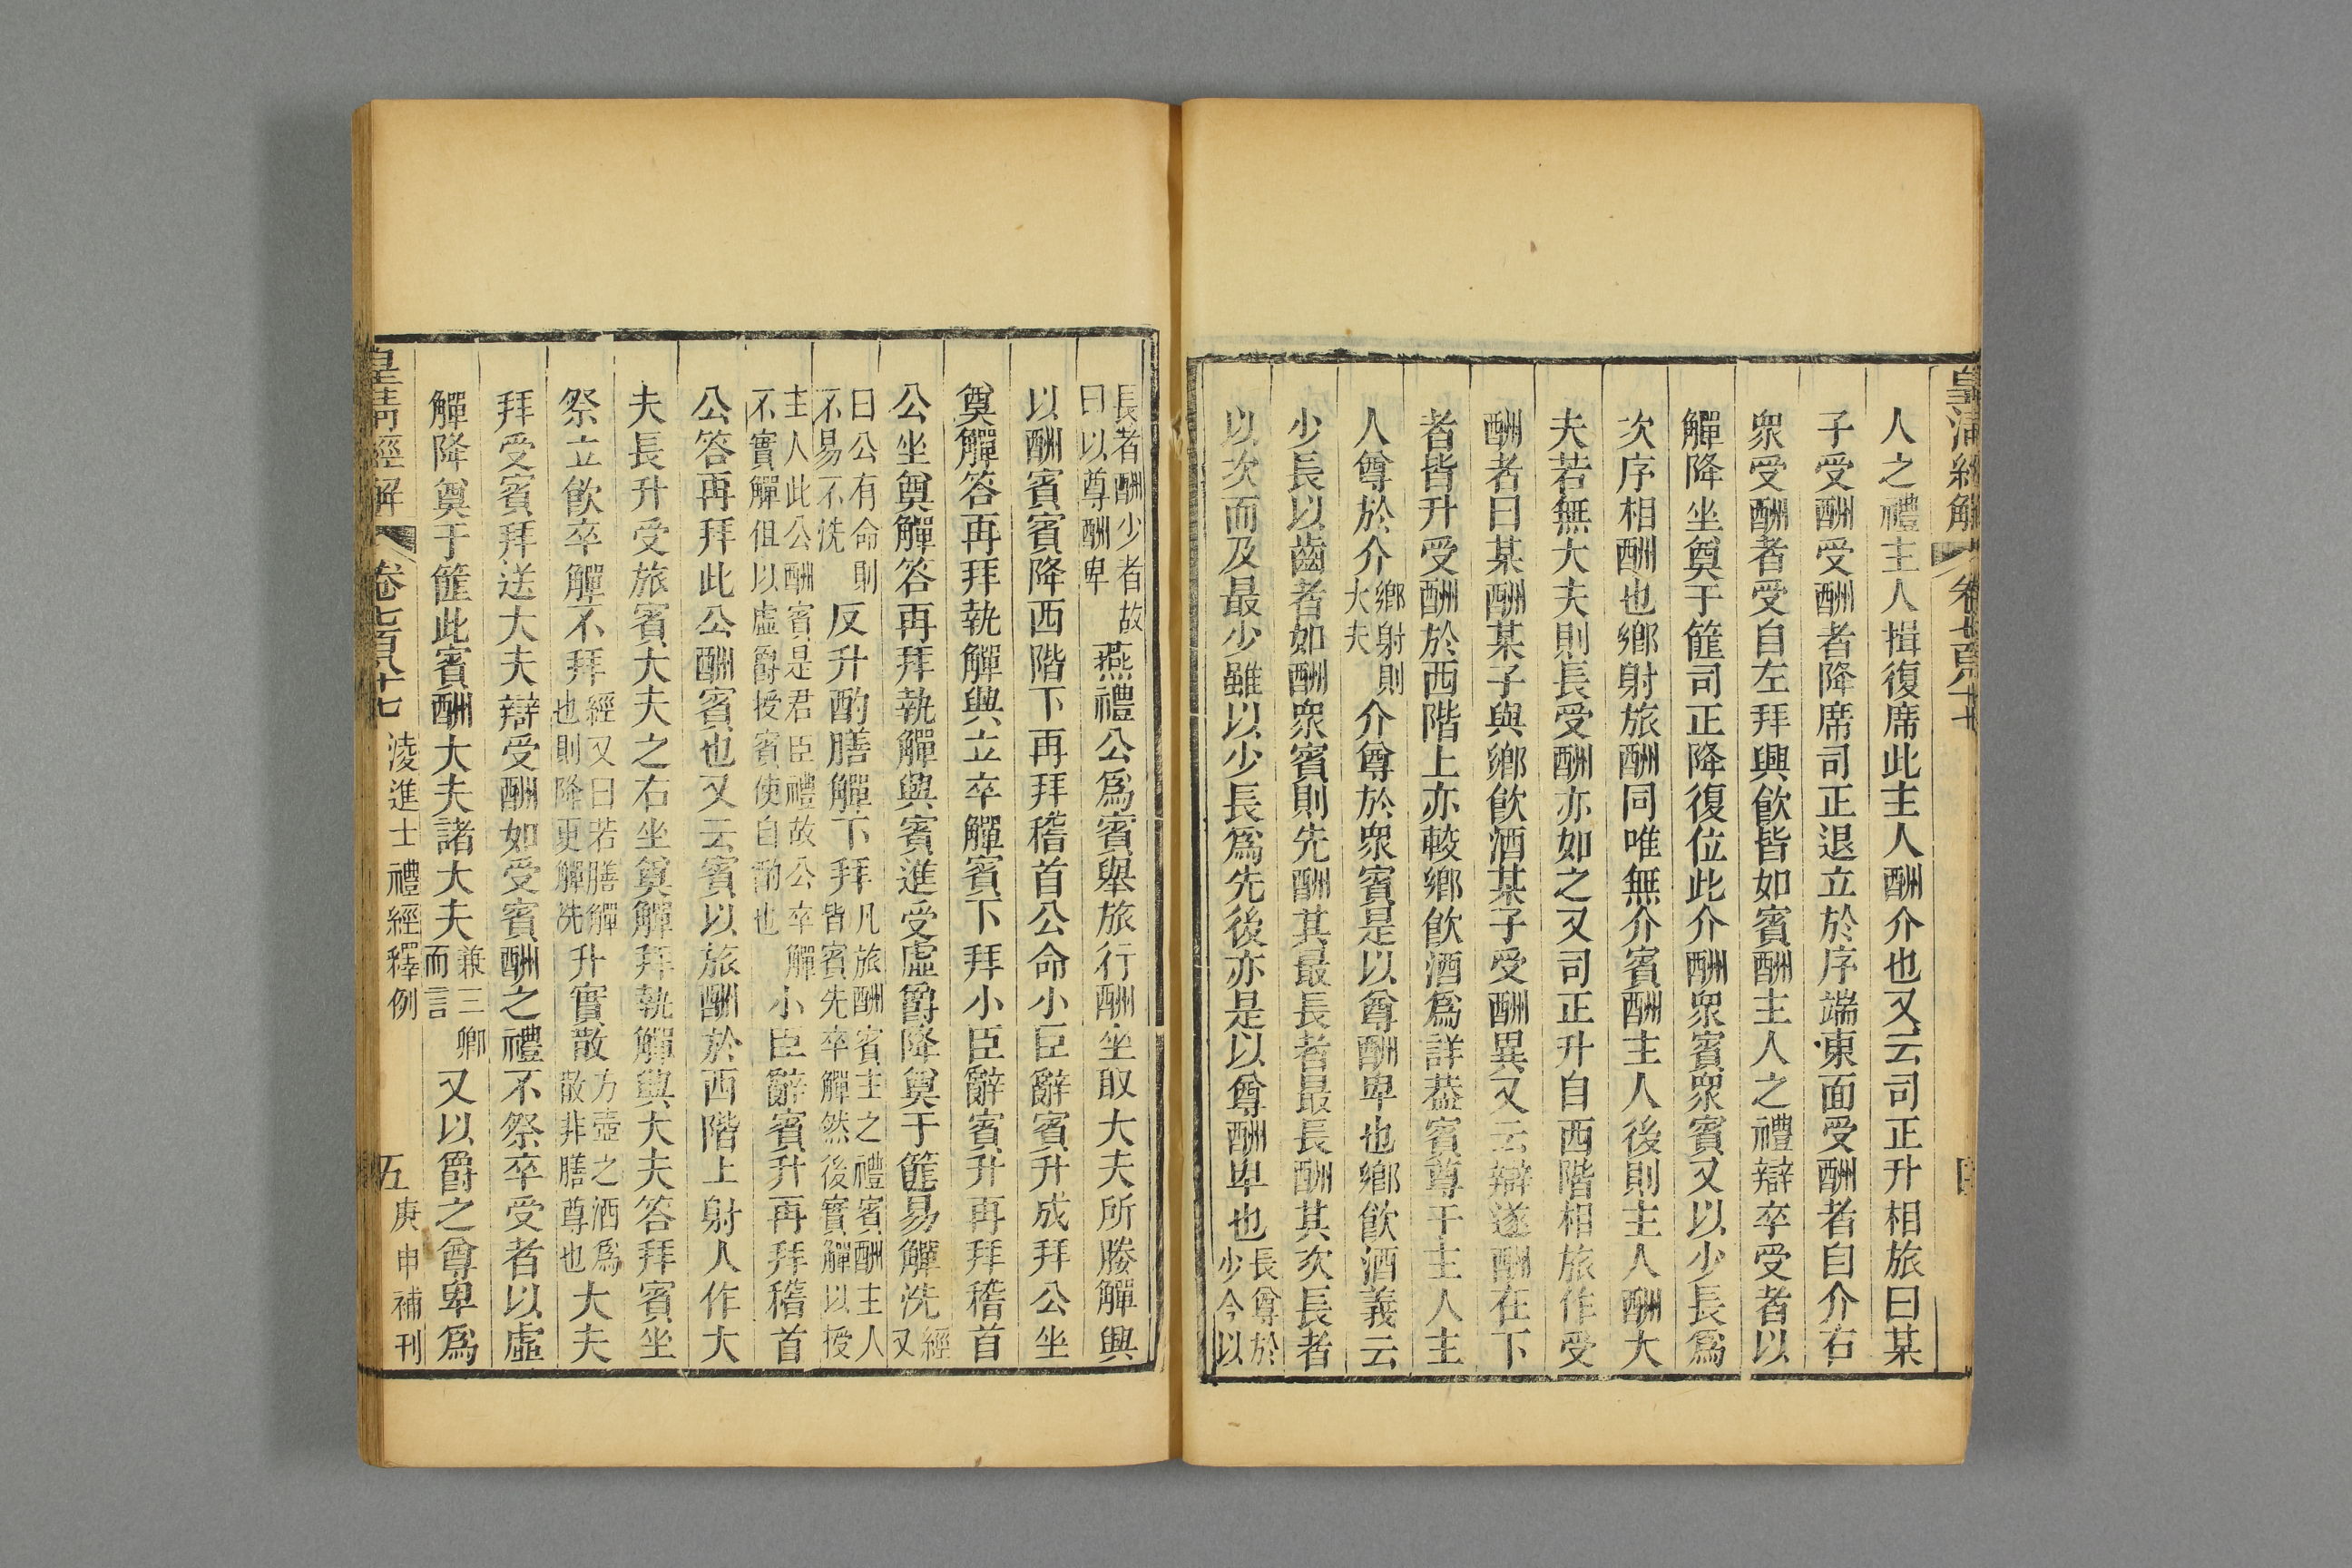 皇清經解 卷七百八十七
人之禮主人揖復席此主人酬介也又云司正升相旅曰某
子受酬受酬者降席司正退立於序端東面受酬者自介右
衆受酬者受自左拜興飮皆如賓酬主人之禮辯卒受者以
觶降坐奠于篚司正降復位此介酬衆賓衆賓又以少長爲
次序相酬也鄉射旅酬同唯無介賓酬主人後則主人酬大
夫若無大夫則長受酬亦如之又司正升自西階相旅作受
酬者曰某酬某子與鄉飮酒某子受酬異又云辯遂酬在下
者皆升受酬於西階上亦較鄉飮酒爲詳葢賓尊于主人主
人尊於介鄉射則大夫介尊於衆賓是以尊酬卑也鄉飮酒義云
少長以齒者如酬衆賓則先酬其最長者最長酬其次長者
以次而及最少雖以少長爲先後亦是以尊酬卑也長尊於少今以
長者酬少者故曰以尊酬卑燕禮公爲賓舉旅行酬坐取大夫所媵觶興
以酬賓賓降西階下再拜稽首公命小臣辭賓升成拜公坐
奠觶答再拜執觶興立卒觶賓下拜小臣辭賓升再拜稽首
公坐奠觶答再拜執觶興賓進受虛爵降奠于篚易觶洗經又
曰公有命則不易不洗反升酌膳觶下拜凡旅酬賓主之禮賓酬主人皆賓先卒觶然後實觶以授
主人此公酬賓是君臣禮故公卒觶不實觶但以虛爵授賓使自酌也小臣辭賓升再拜稽首
公答再拜此公酬賓也又云賓以旅酬於西階上射人作大
夫長升受旅賓大夫之右坐奠觶拜執觶興大夫答拜賓坐
祭立飮卒觶不拜經又曰若膳觶也則降更觶洗升實散方壺之酒爲散非膳尊也大夫
拜受賓拜送大夫辯受酬如受賓酬之禮不祭卒受者以虛
觶降奠于篚此賓酬大夫諸大夫兼三卿而言又以爵之尊卑爲
皇清經解 卷七百八十七 淩進士禮經釋例 五 庚申補刊